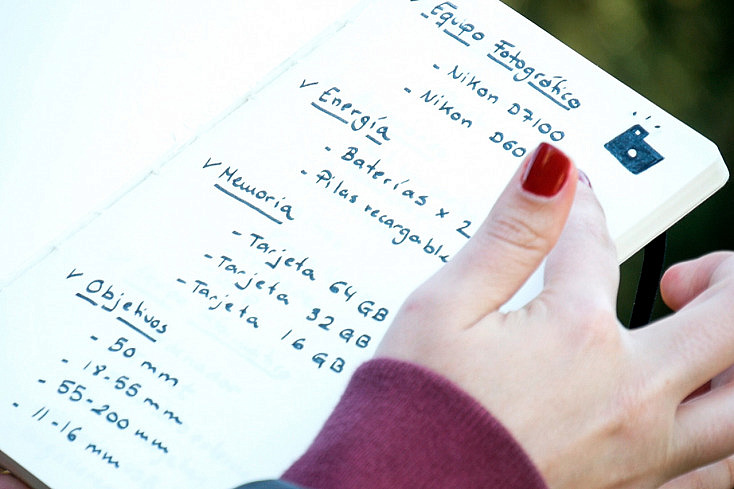 ✓ Equipo Fotográfico
- Nikon D7100
- Nikon D60
✓ Energía
- Baterías x 2
- Pilas recargable
✓ Memoria
- Tarjeta 64 GB
- Tarjeta 32 GB
- Tarjeta 16 GB
✓ Objetivos
- 50 mm
- 18-55 mm
- 55-200 mm
- 11-16 mm